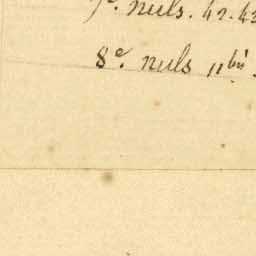 7e. nuls. 42. 43
8e. nuls 11bis